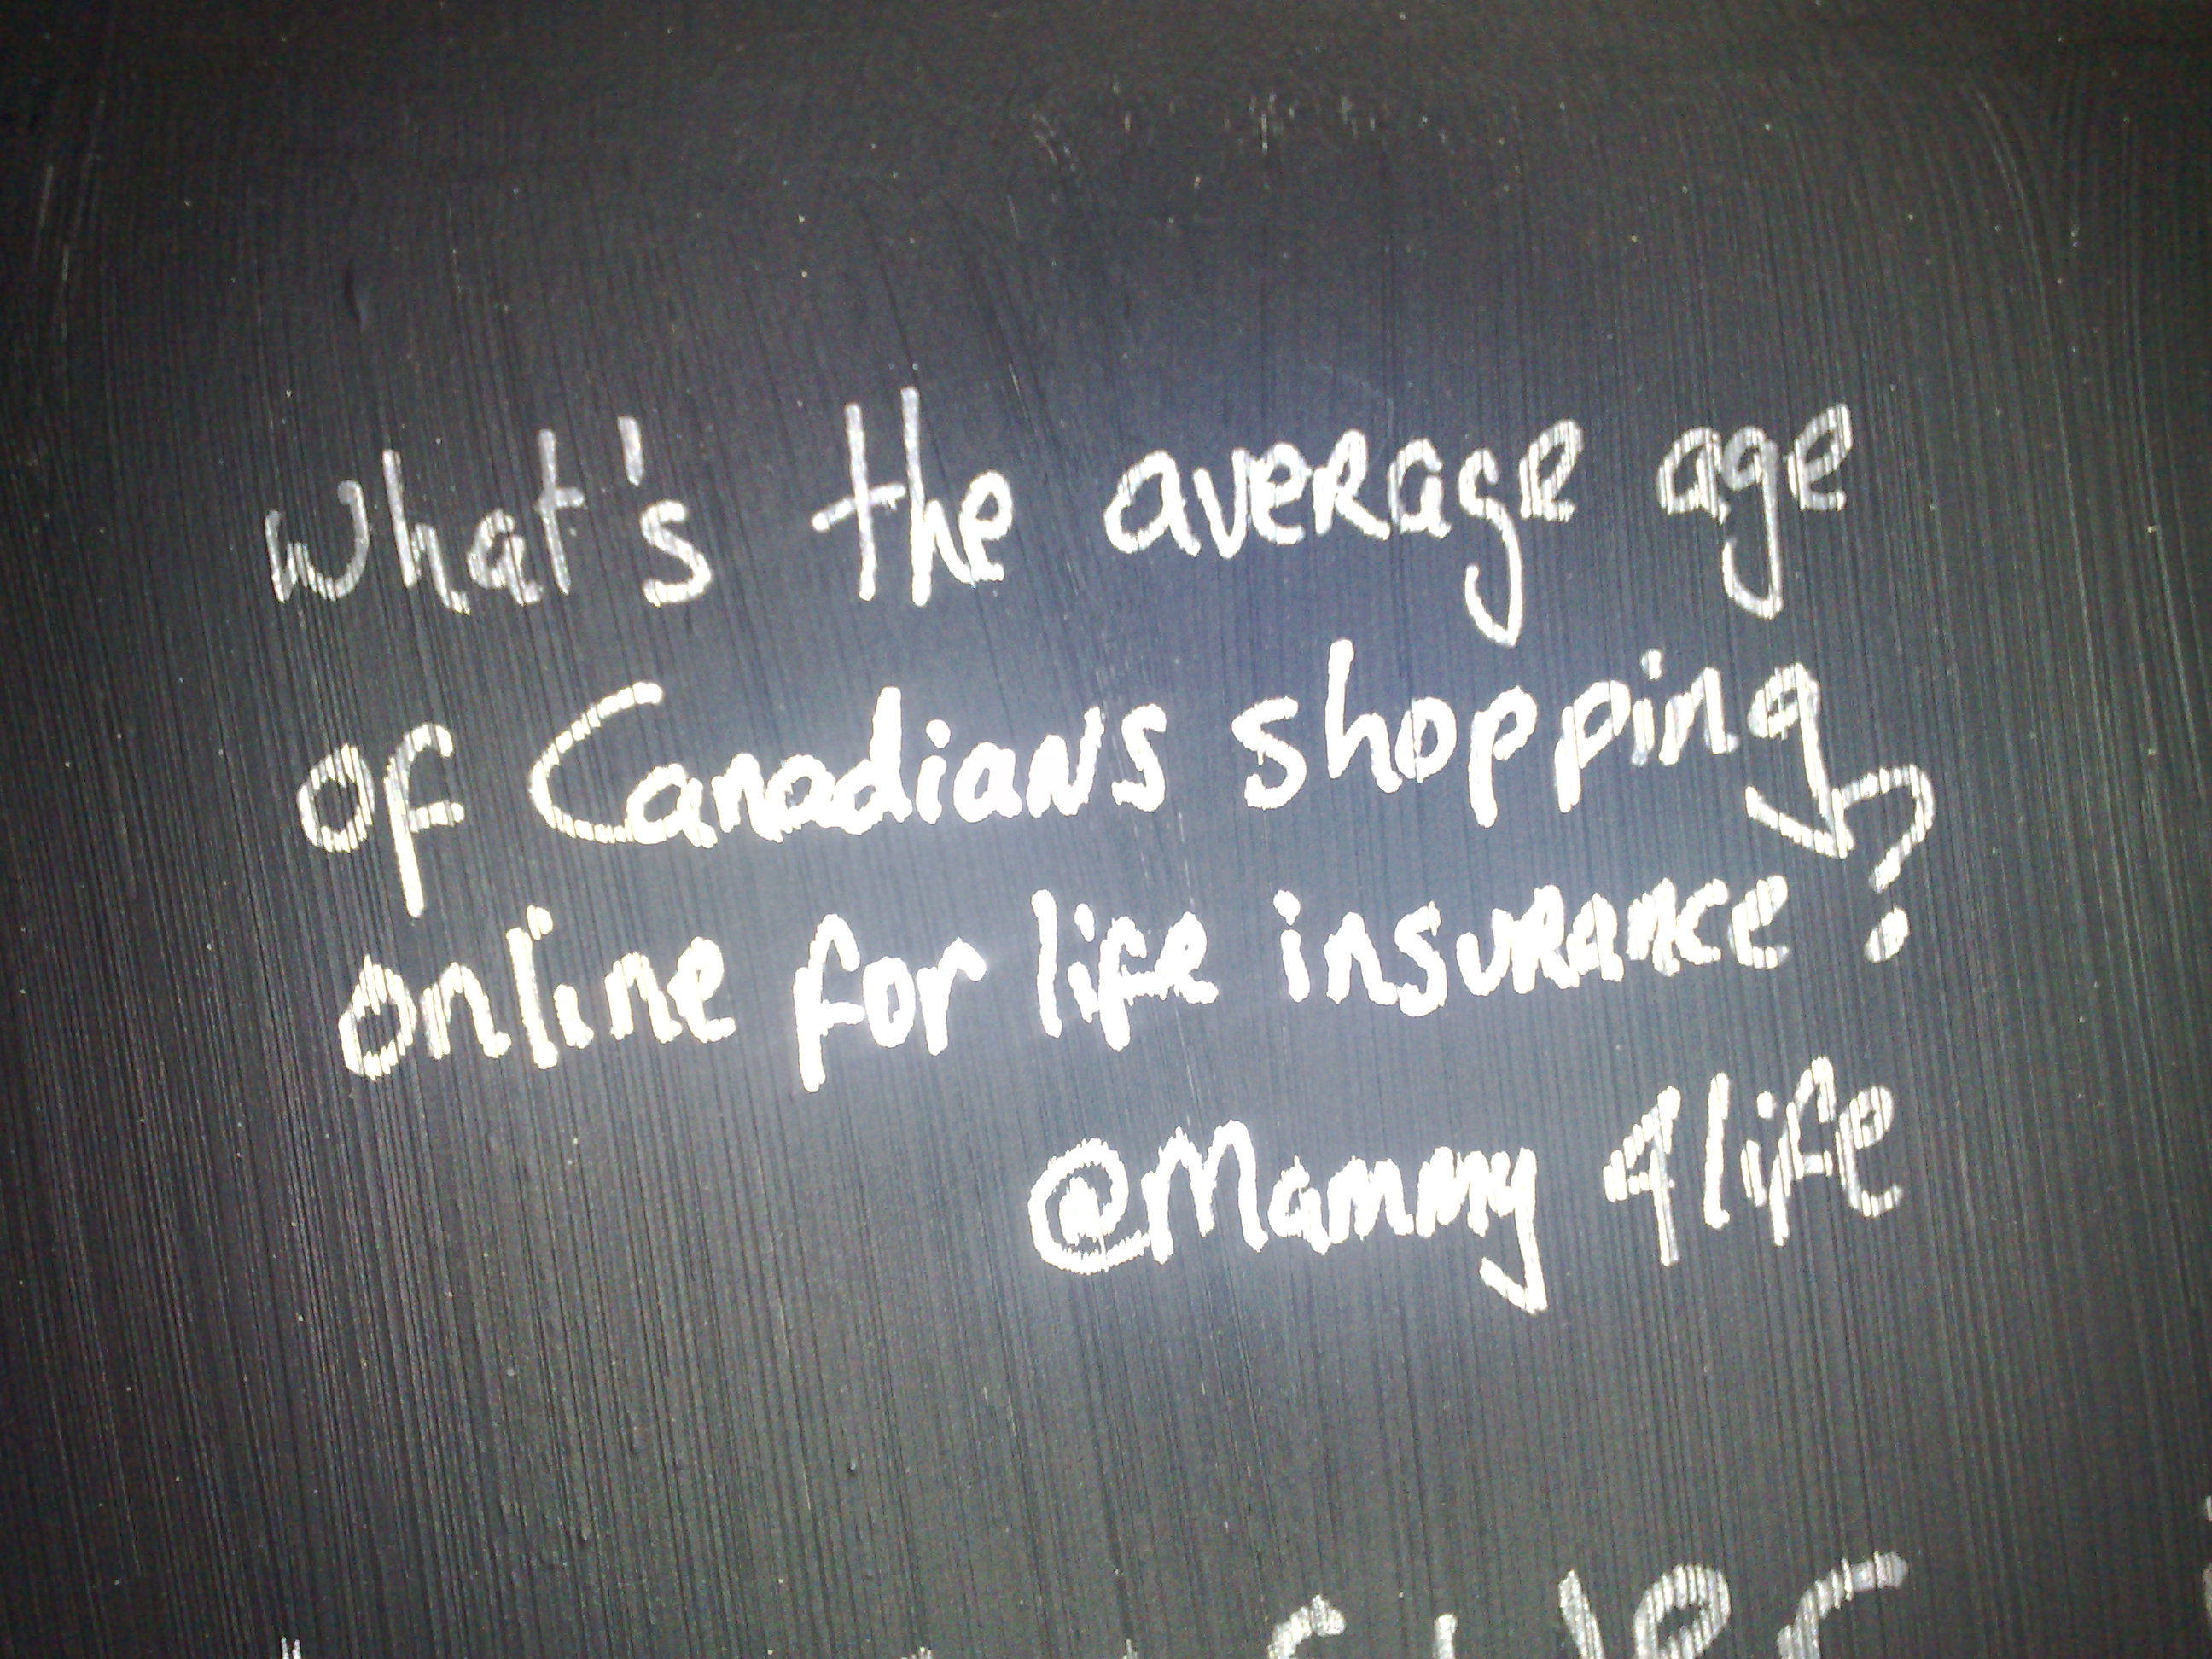 What's the average age
of Canadians shopping
online for life insurance?
@Mammy4life